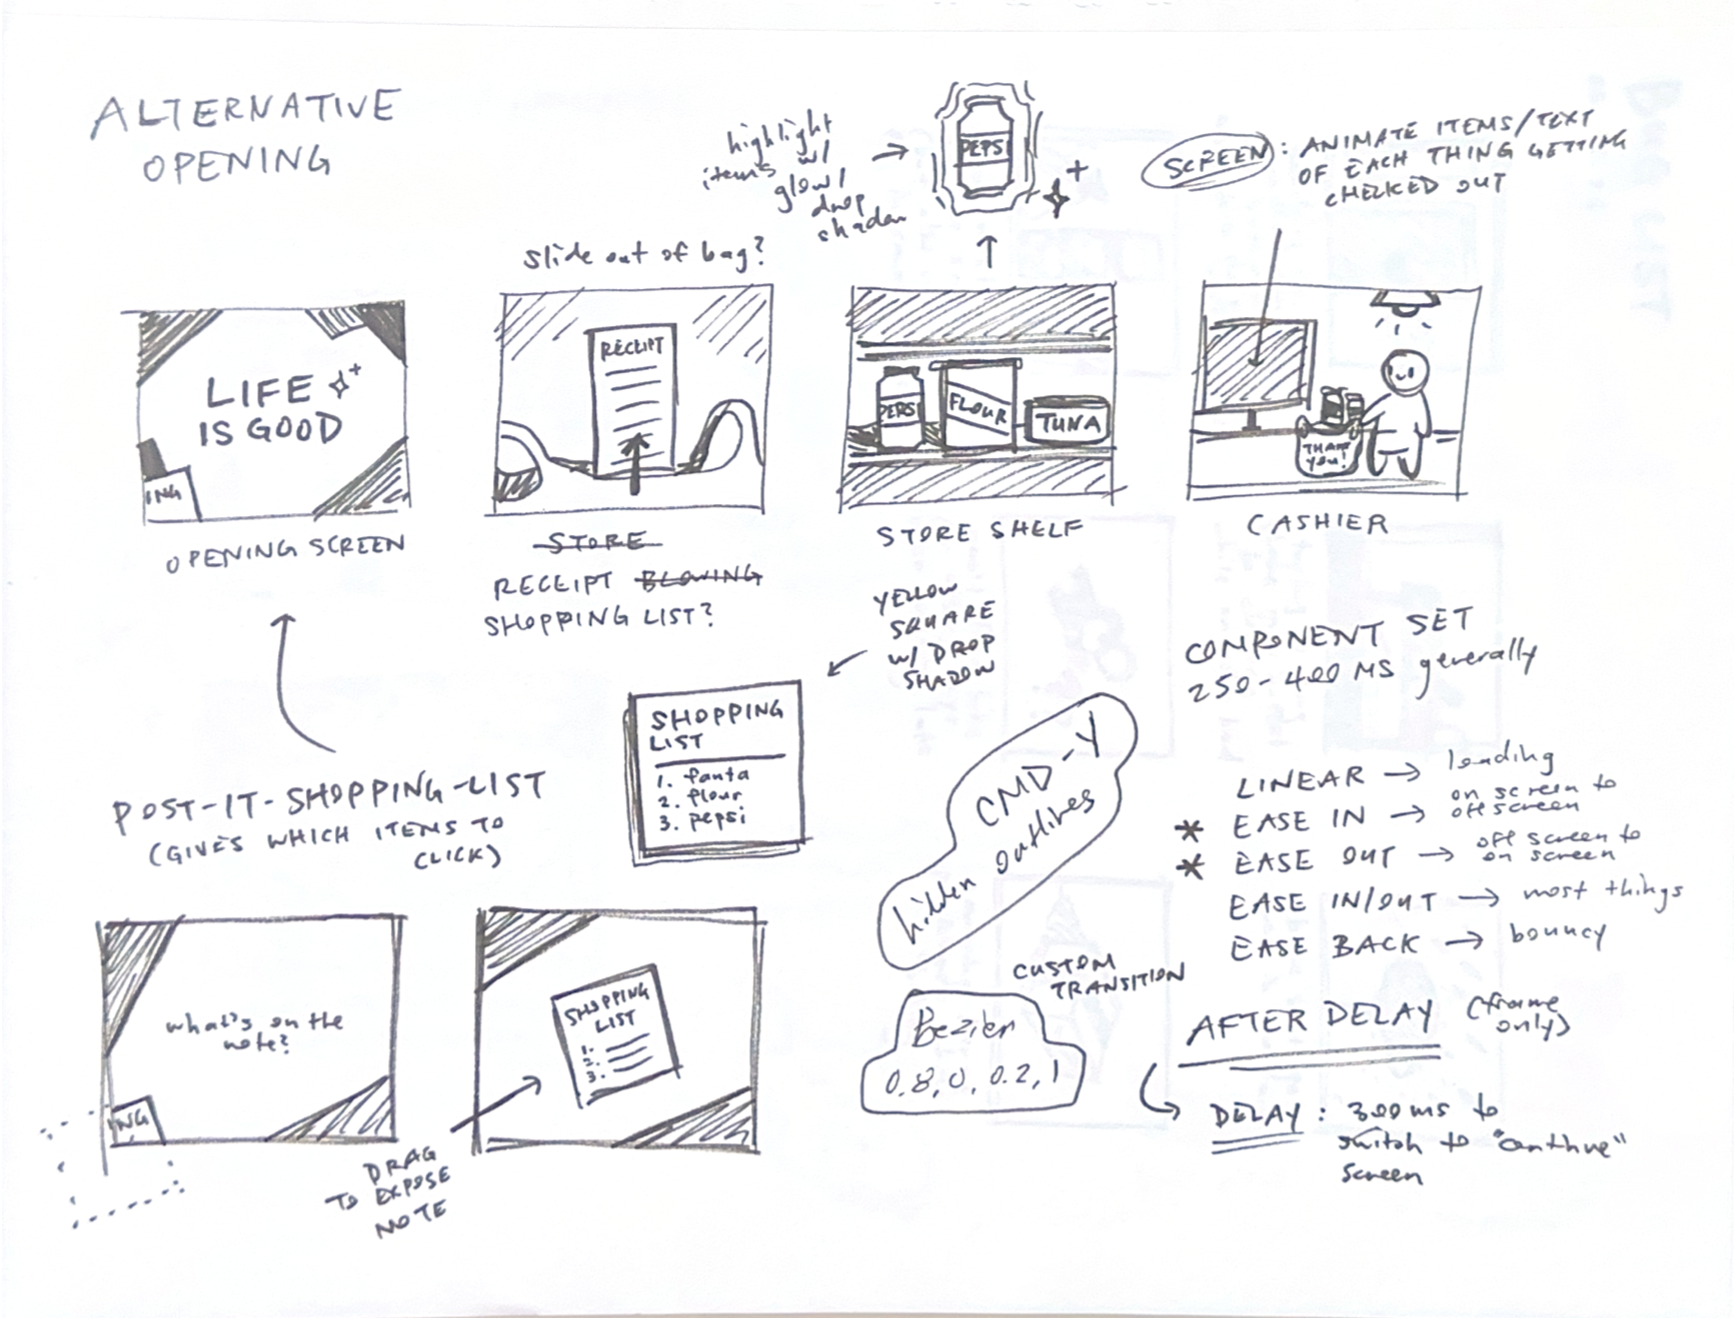 ALTERNATIVE
OPENING
highlight
items w/
glow/
drop
shadow
PEPSI
SCREEN: ANIMATE ITEMS/TEXT
OF EACH THING GETTING
CHECKED OUT
slide out of bag?
LIFE
IS GOOD
ING
OPENING SCREEN
RECEIPT
STORE
RECEIPT BLOWING
SHOPPING LIST?
PEPSI
FLOUR
TUNA
STORE SHELF
THANK
YOU!
CASHIER
YELLOW
SQUARE
W/ DROP
SHADOW
SHOPPING
LIST
1. fanta
2. flour
3. pepsi
POST-IT-SHOPPING-LIST
(GIVES WHICH ITEMS TO
CLICK)
what's on the
note?
ING
SHOPPING
LIST
1.
2.
3.
DRAG
TO EXPOSE
NOTE
CMD-Y
hidden outlines
CUSTOM
TRANSITION
Bezier
0.8, 0, 0.2, 1
COMPONENT SET
250-400 MS generally
LINEAR → loading
* EASE IN → on screen to
off screen
* EASE OUT → off screen to
on screen
EASE IN/OUT → most things
EASE BACK → bouncy
AFTER DELAY (frame
only)
DELAY: 300ms to
switch to "continue"
screen